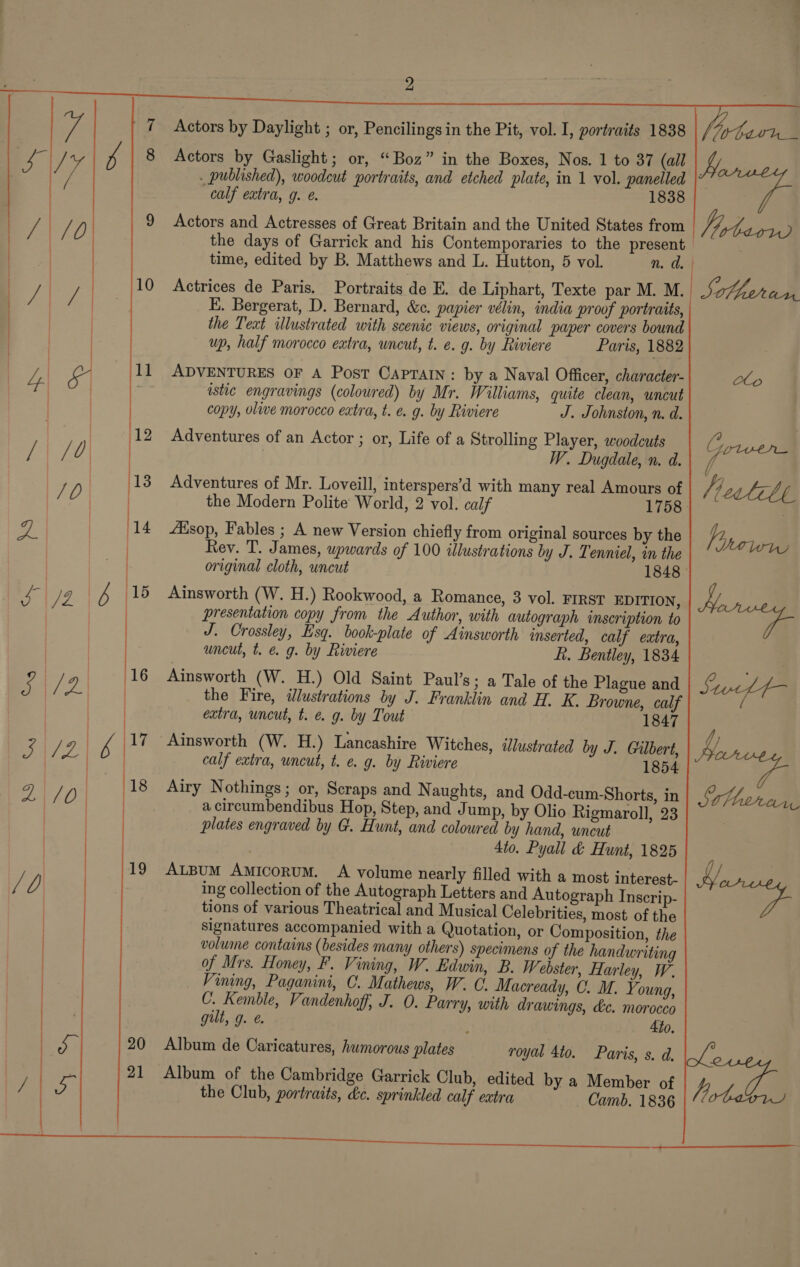 2
7 7 Actors by Daylight ; or, Pencilings in the Pit, vol. I, portraits 1838 Hobson
5 17 6 8 Actors by Gaslight ; or, “Boz” in the Boxes, Nos. 1 to 37 (all Harvey
published), woodcut portraits, and etched plate, in 1 vol. panelled
calf extra, g. e. 1838
1 10 9 Actors and Actresses of Great Britain and the United States from Hobson
the days of Garrick and his Contemporaries to the present
time, edited by B. Matthews and L. Hutton, 5 vol. n. d.
1 1 10 Actrices de Paris. Portraits de E. de Liphart, Texte par M. M. Sotheran
E. Bergerat, D. Bernard, &c. papier vélin, india proof portraits,
the Text illustrated with scenic views, original paper covers bound
up, half morocco extra, uncut, t. e. g. by Riviere Paris, 1882
4 8 11 ADVENTURES OF A POST CAPTAIN : by a Naval Officer, character- do
istic engravings (coloured) by Mr. Williams, quite clean, uncut
copy, olive morocco extra, t. e. g. by Riviere J. Johnston, n. d.
1 10 12 Adventures of an Actor ; or, Life of a Strolling Player, woodcuts Gower
W. Dugdale, n. d.
10 13 Adventures of Mr. Loveill, interspers’d with many real Amours of
the Modern Polite World, 2 vol. calf 1758
2 14 Æsop, Fables ; A new Version chiefly from original sources by the Brown
Rev. T. James, upwards of 100 illustrations by J. Tenniel, in the
original cloth, uncut 1848
5 12 6 15 Ainsworth (W. H.) Rookwood, a Romance, 3 vol. FIRST EDITION, Harvey
presentation copy from the Author, with autograph inscription to
J. Crossley, Esq. book-plate of Ainsworth inserted, calf extra,
uncut, t. e. g. by Riviere R. Bentley, 1834
3 12 16 Ainsworth (W. H.) Old Saint Paul’s ; a Tale of the Plague and Swift
the Fire, illustrations by J. Franklin and H. K. Browne, calf
extra, uncut, t. e. g. by Tout 1847
3 12 6 17 Ainsworth (W. H.) Lancashire Witches, illustrated by J. Gilbert, Harvey
calf extra, uncut, t. e. g. by Riviere 1854
2 10 18 Airy Nothings ; or, Scraps and Naughts, and Odd-cum-Shorts, in Sotheran
a circumbendibus Hop, Step, and Jump, by Olio Rigmaroll, 23
plates engraved by G. Hunt, and coloured by hand, uncut
4to. Pyall & Hunt, 1825
10 19 ALBUM AMICORUM. A volume nearly filled with a most interest- Harvey
ing collection of the Autograph Letters and Autograph Inscrip-
tions of various Theatrical and Musical Celebrities, most of the
signatures accompanied with a Quotation, or Composition, the
volume contains (besides many others) specimens of the handwriting
of Mrs. Honey, F. Vining, W. Edwin, B. Webster, Harley, W.
Vining, Paganini, C. Mathews, W. C. Macready, C. M. Young,
C. Kemble, Vandenhoff, J. O. Parry, with drawings, &c. morocco
gilt, g. e. 4to.
5 20 Album de Caricatures, humorous plates royal 4to. Paris, s. d.
1 5 21 Album of the Cambridge Garrick Club, edited by a Member of Hobson
the Club, portraits, &c. sprinkled calf extra Camb. 1836